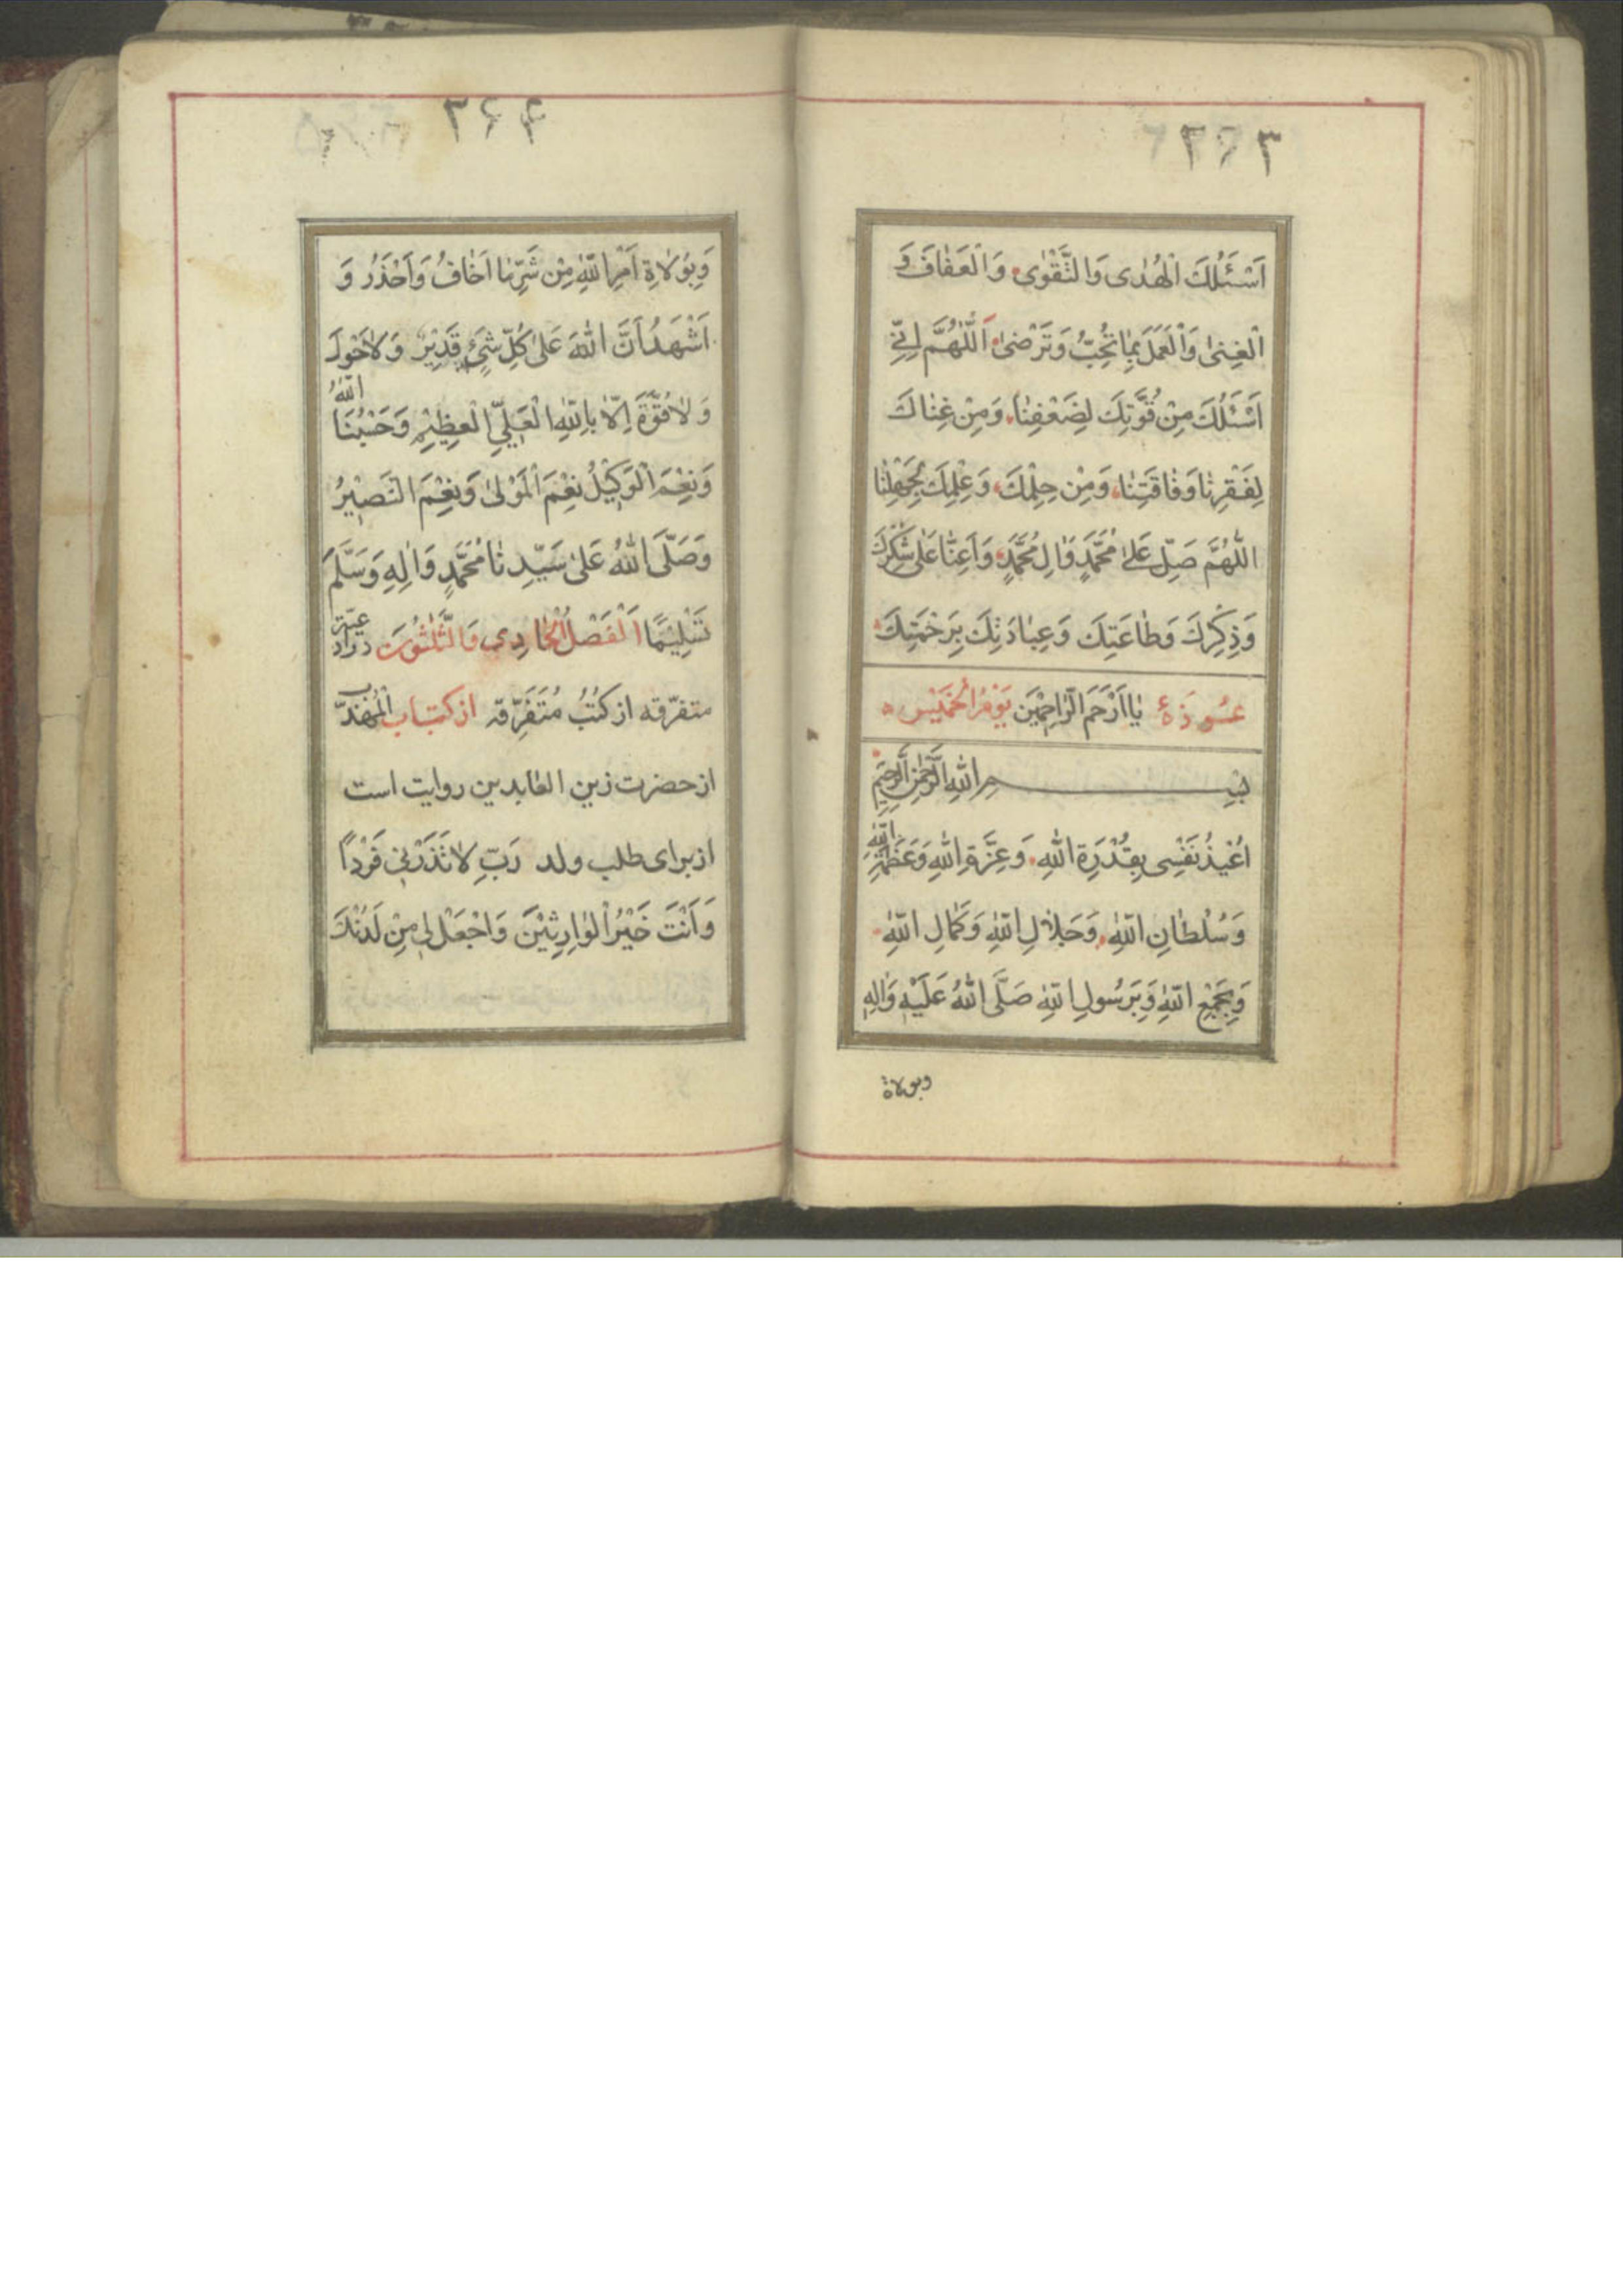 ٣٦٣
اَسْئَلُكَ الْهُدٰى وَالتَّقْوٰى وَالْعَفٰافَ وَ
الْغِنىٰ وَالْعَمَلَ بِمٰا تُحِبُّ وَتَرْضىٰ اَللّٰهُمَّ اِنّي
اَسْئَلُكَ مِنْ قُوَّتِكَ لِضَعْفِنٰا وَمِنْ غِنٰاكَ
لِفَقْرِنٰا وَفٰاقَتِنٰا وَمِنْ حِلْمِكَ وَعِلْمِكَ بِجَهْلِنٰا
اللّٰهُمَّ صَلِّ عَلىٰ مُحَمَّدٍ وَاٰلِ مُحَمَّدٍ وَاَعِنّٰا عَلىٰ شُكْرِكَ
وَذِكْرِكَ وَطٰاعَتِكَ وَعِبٰادَتِكَ بِرَحْمَتِكَ
عُوذَةُ يٰا اَرْحَمَ الرّٰاحِمْيَن يَوْمُ الْخَمْيِس
بِسْمِ اللّٰهِ الرَّحْمٰنِ الرَّحِيمِ
اُعْيذُ نَفْسِى بِقُدْرَةِ اللّٰهِ وَعِزَّةِ اللّٰهِ وَعَظَمَةِ اللّٰهِ
وَسُلْطٰانِ اللّٰهِ وَجَلٰالِ اللّٰهِ وَكَمٰالِ اللّٰهِ
وَبِجَمْعِ اللّٰهِ وَبِرَسُولِ اللّٰهِ صَلَّى اللّٰهُ عَلَيْهِ وَاٰلِهِ
وبولاة
٣٦٤
وَبِوُلٰاةِ اَمْرِ اللّٰهِ مِنْ شَرِّ مٰا اَخٰافُ وَاَحْذَرُ وَ
اَشْهَدُ اَنَّ اللّٰهَ عَلىٰ كُلِّ شَيْءٍ قَدْيِرٌ وَلاٰحَوْلَ
وَلاٰقُوَّةَ اِلّٰا بِاللّٰهِ الْعَلِيِّ الْعَظِيْمِ وَحَسْبُنَا اللّٰهُ
وَنِعْمَ الْوَكْيِلُ نِعْمَ الْمَوْلىٰ وَنِعْمَ النَّصْيِرُ
وَصَلَّى اللّٰهُ عَلىٰ سَيِّدِنٰا مُحَمَّدٍ وَاٰلِهِ وَسَلَّمَ
تَسْلِيْمًا اَلْفَصْلُ الْحٰادِي وَالثَّلٰثُونَ در ادعيّه
متفرّقه از كُتُبُ مُتَفَرِّقه از كتاب الْمُهَذَّب
از حضرت زين العٰابدين روايت است
از براى طلب ولد رَبِّ لاٰتَذَرْنِي فَرْداً
وَاَنْتَ خَيْرُ الْوٰارِثْيِنَ وَاجْعَلْ لي مِنْ لَدُنْكَ